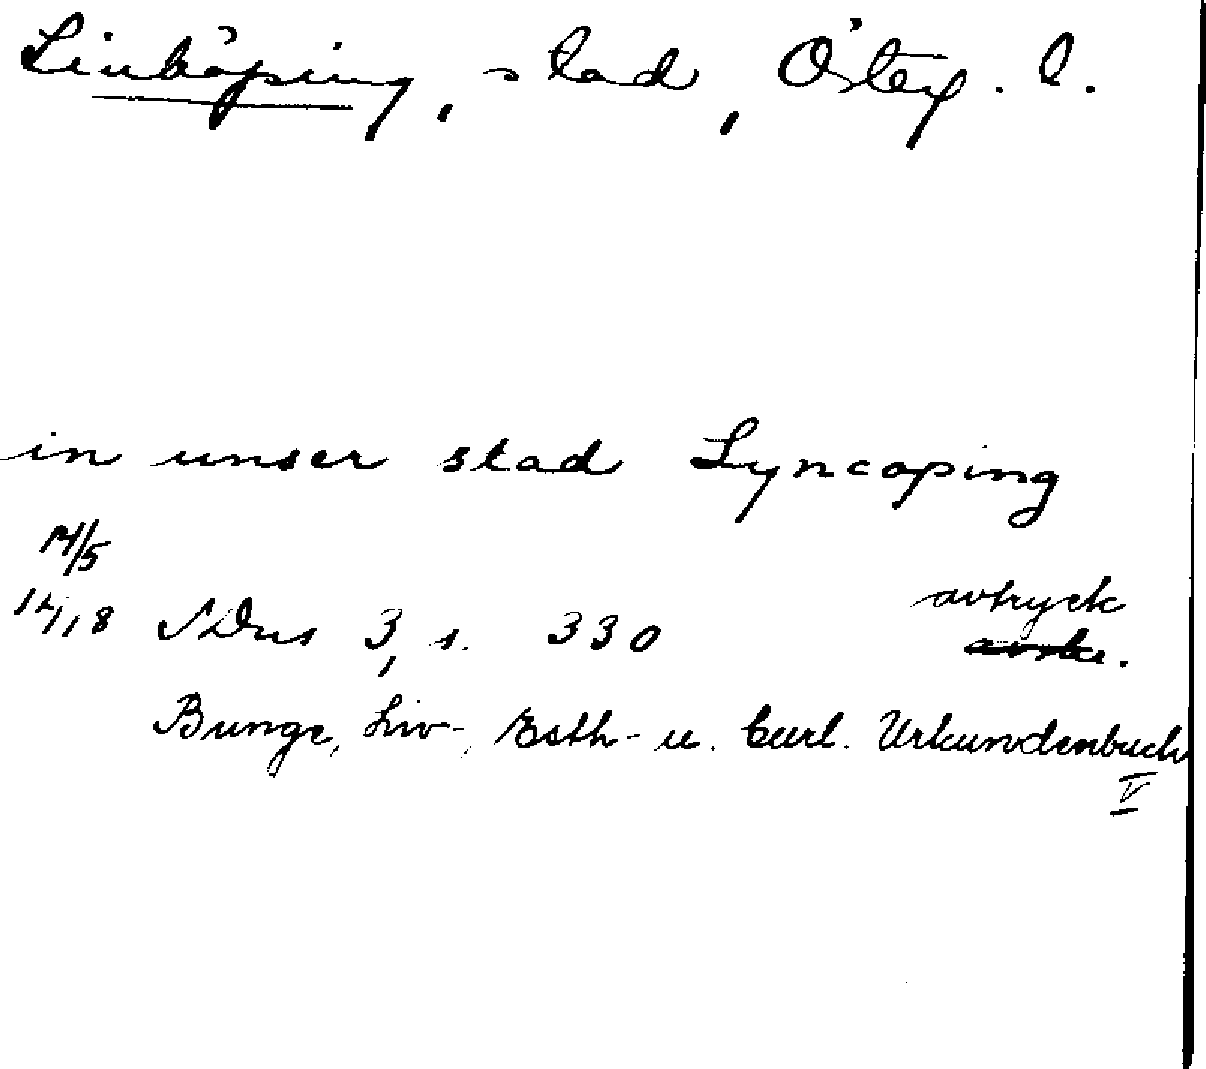 Linköping, stad, Österg. l.
in unser stad Lyncoping
14/5
1418 SDns 3, s. 330 avtryck
Bunge, Liv-, Esth- u. Curl. Urkundenbuch
V